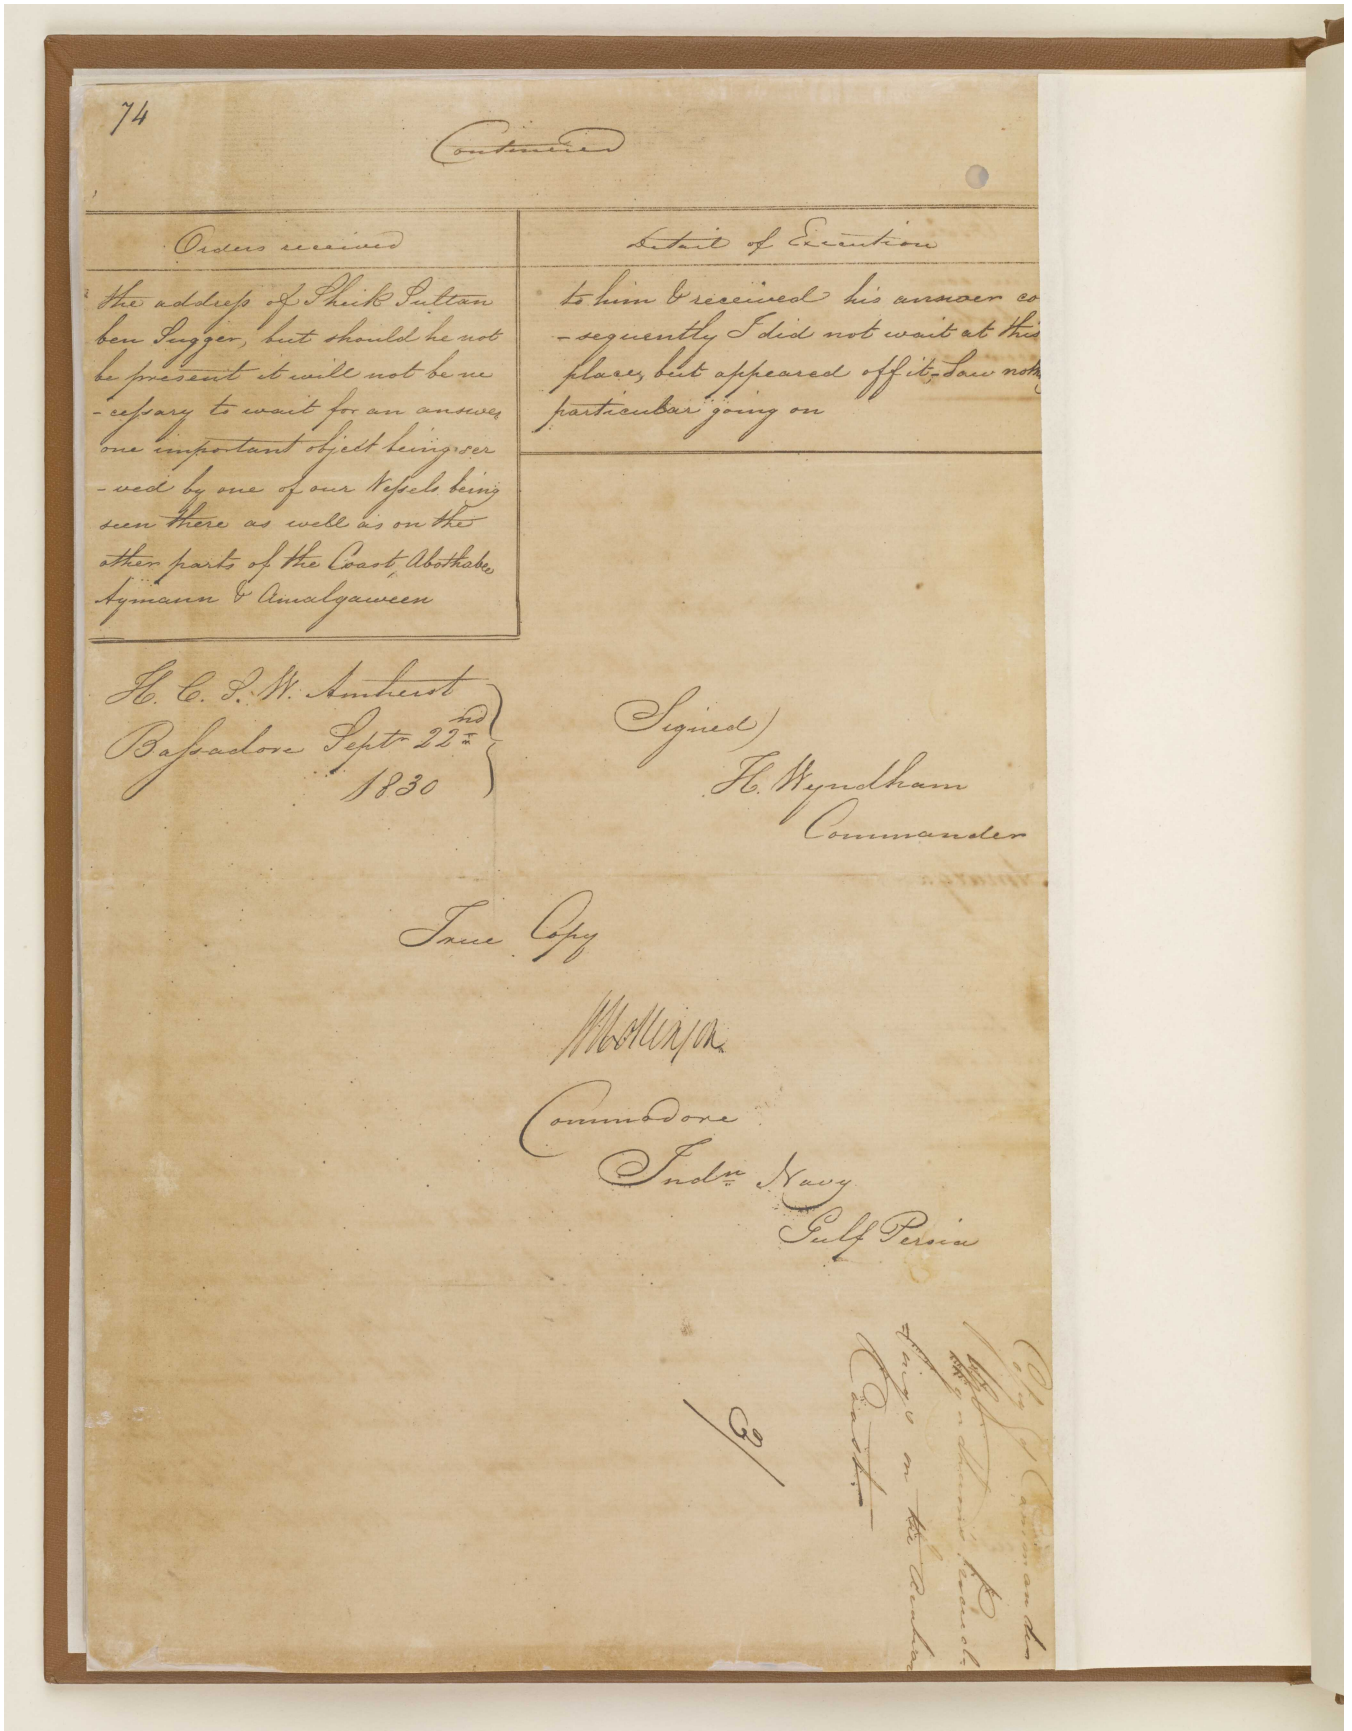 74
Continued
Orders received
the address of Sheik Sultan
ben Sugger, but should he not
be present it will not be ne
-cessary to wait for an answer
one important object being ser
-ved by one of our Vessels being
seen there as well as on the
other parts of the Coast, Abothabee
Aymaun & Amalgaween
Detail of Execution
to him & received his answer co
-sequently I did not wait at this
place, but appeared off it - Saw noth
particular going on
H. C. S. W. Amherst
Bassadore Septr 22nd
1830
Signed)
H. Wyndham
Commander
True Copy
Commodore
Indn Navy
Gulf Persia
3/
Copy of Commander
Wyndham's Proceed-
-ings on the Arabian
Coast.